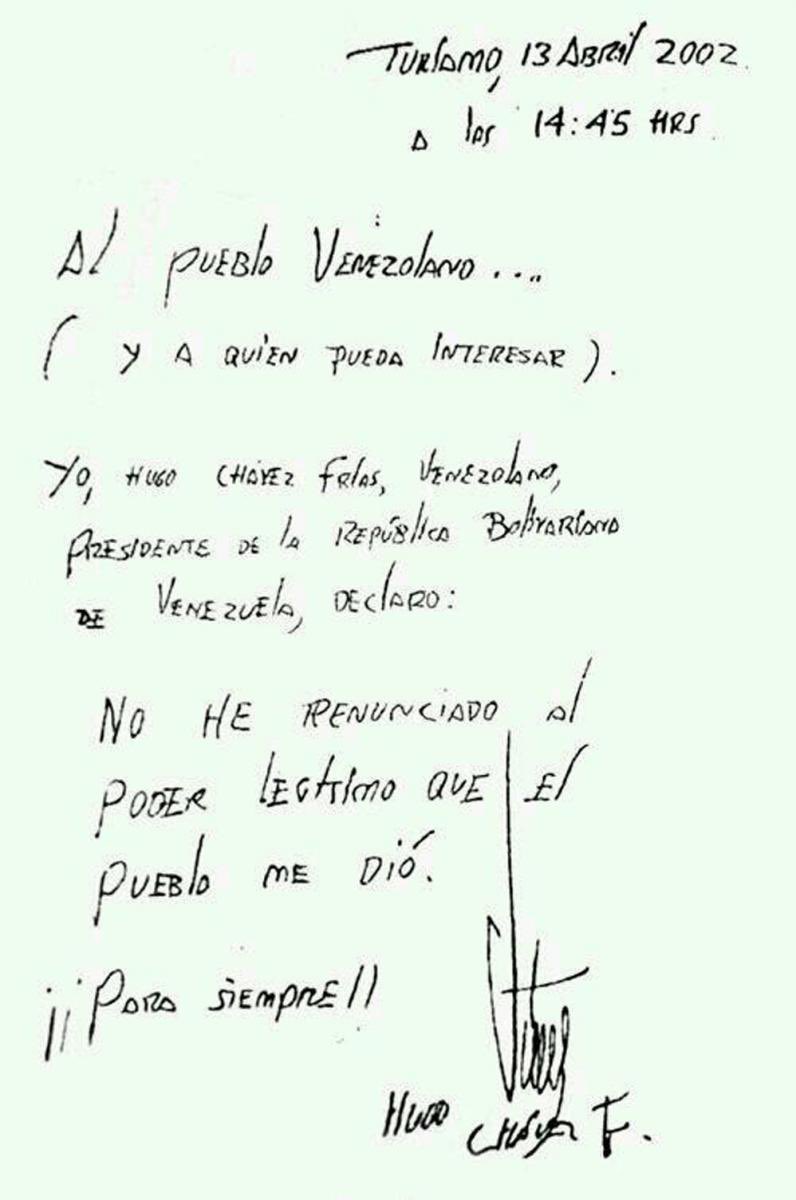 Turiamo, 13 Abril 2002.
A las 14:45 HRS.
Al pueblo Venezolano....
(Y A quien pueda interesar).
Yo, Hugo Chávez Frías, Venezolano,
Presidente de la República Bolivariana
de Venezuela, declaro:
No he renunciado al
poder legítimo que el
pueblo me dió.
¡¡Para siempre!!
Hugo Chávez F.